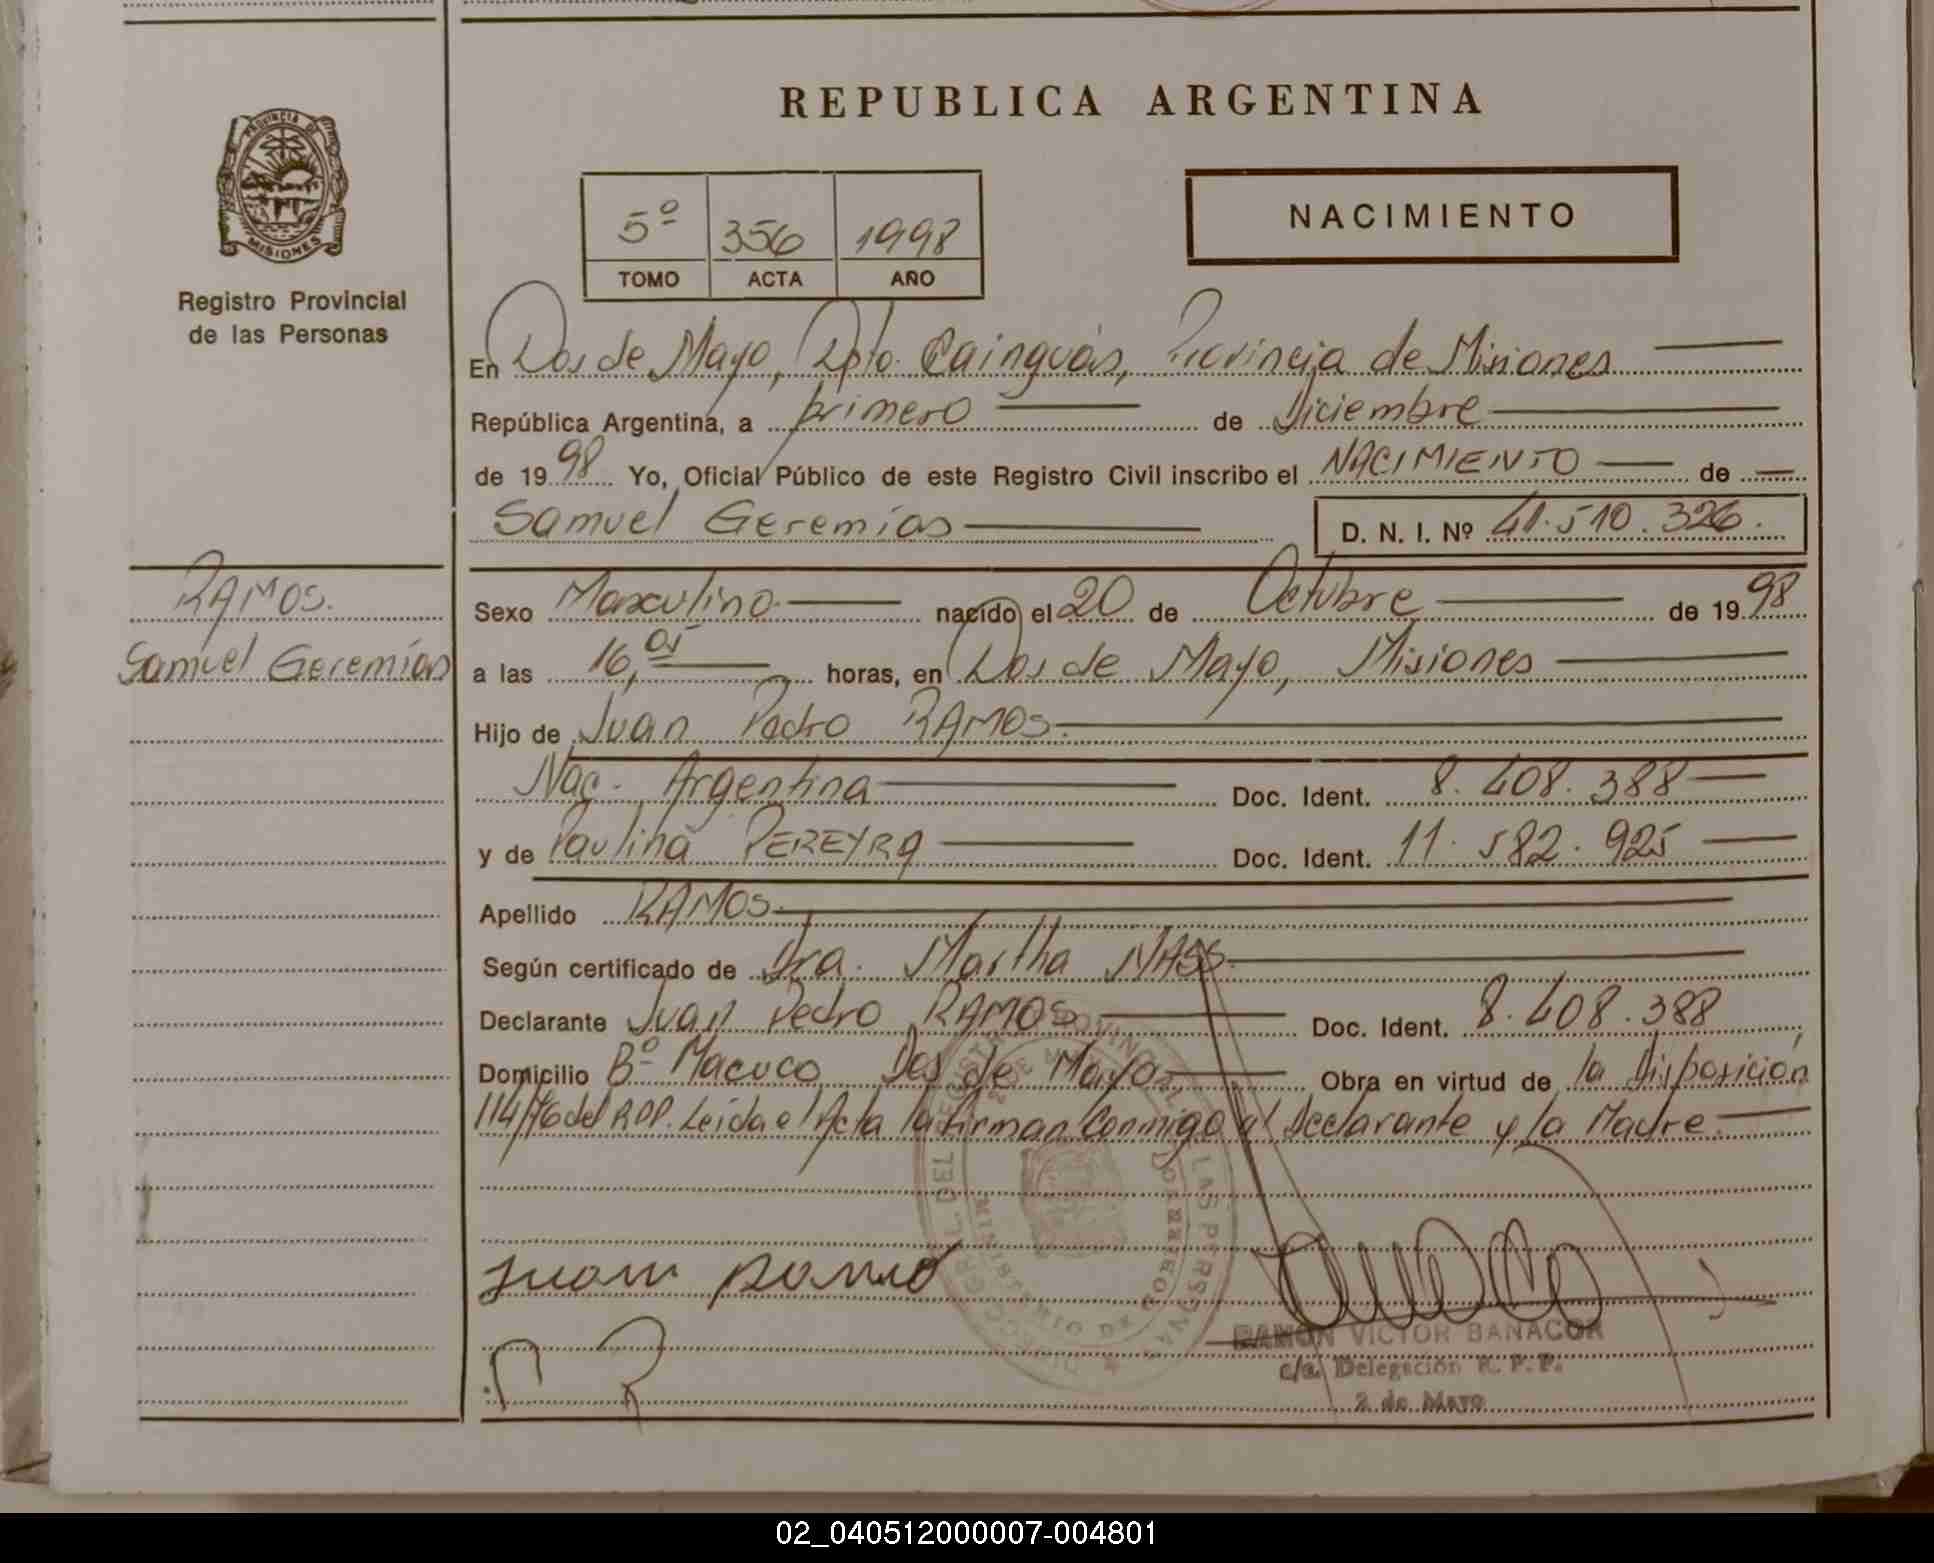 REPUBLICA ARGENTINA
PROVINCIA DE
MISIONES
Registro Provincial
de las Personas
5º 356 1998
TOMO ACTA AÑO
NACIMIENTO
En Dos de Mayo, Dpto. Cainguás, Provincia de Misiones
República Argentina, a primero de Diciembre
de 1998 Yo, Oficial Público de este Registro Civil inscribo el NACIMIENTO de
Samuel Geremías D. N. I. Nº 41.510.326.
RAMOS.
Samuel Geremías
Sexo Masculino nacido el 20 de Octubre de 1998
a las 16,05 horas, en Dos de Mayo, Misiones
Hijo de Juan Pedro RAMOS
Nac. Argentina Doc. Ident. 8.408.388
y de Paulina PEREYRA Doc. Ident. 11.582.925
Apellido RAMOS
Según certificado de Dra. Martha NASS
Declarante Juan Pedro RAMOS Doc. Ident. 8.408.388
Domicilio Bº Macuco Dos de Mayo Obra en virtud de la Disposición
114/76 del RPP. Leída el Acta la firman conmigo el Declarante y la Madre
juan ramo
RAMON VICTOR BANACOR
c/a. Delegación R. P. P.
2 de Mayo
02_040512000007-004801